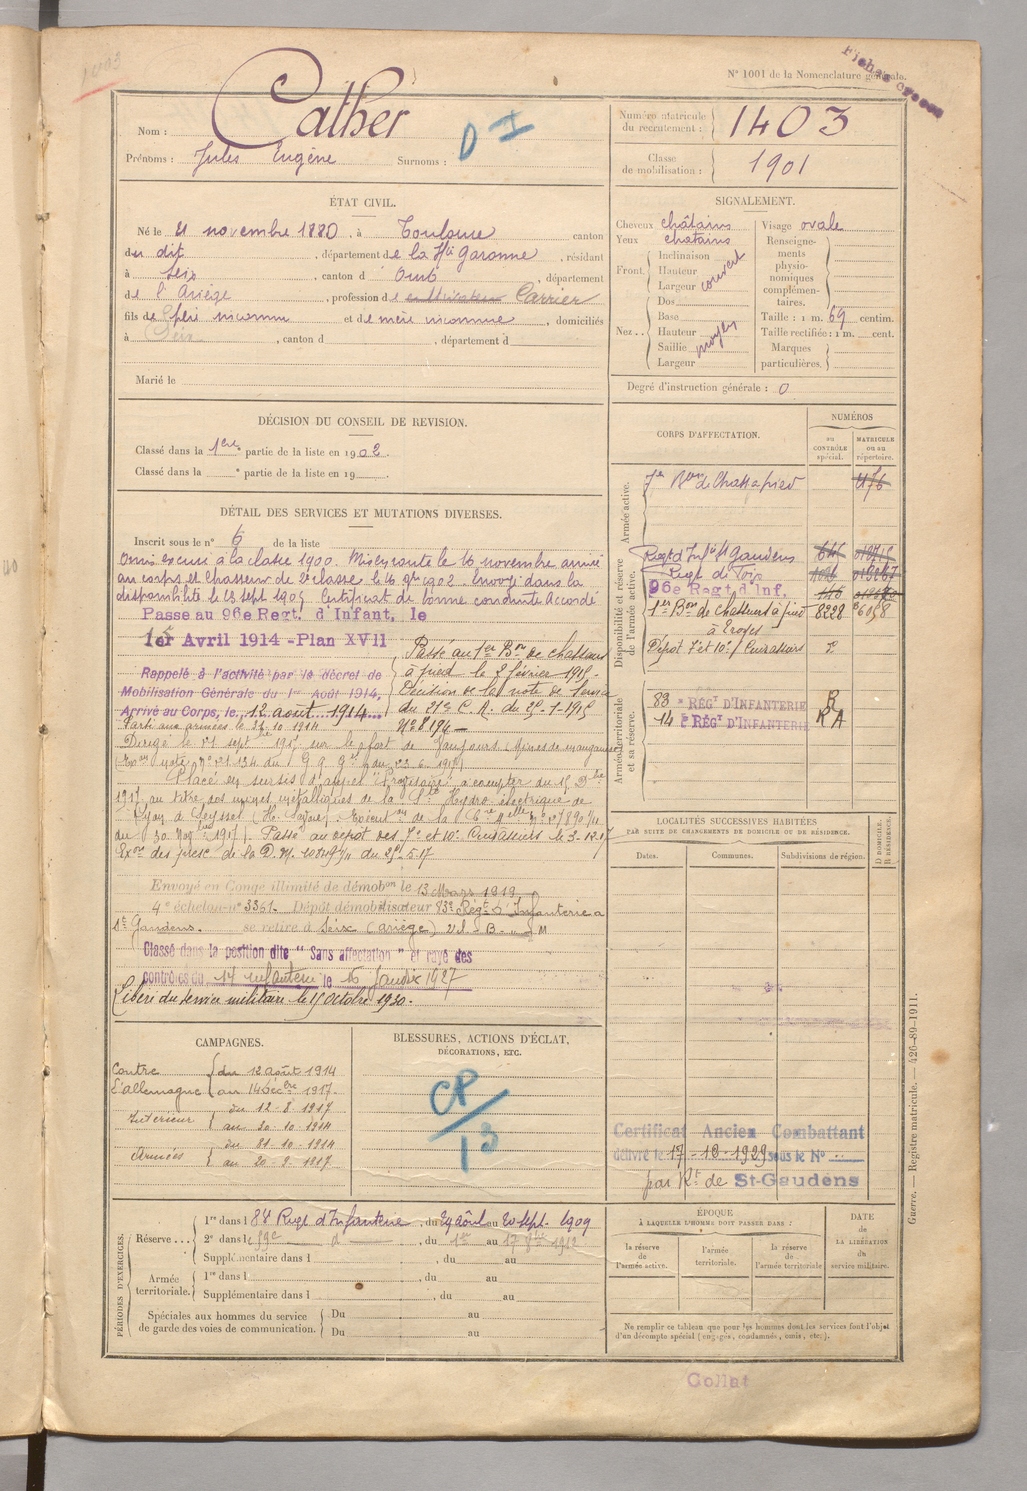 1403
Fiches
N° 1001 de la Nomenclature générale.
Nom : Cather
D I
Prénoms : Jules Eugène Surnoms :
Numéro matricule du recrutement : 1403
Classe de mobilisation : 1901
ÉTAT CIVIL.
Né le 21 novembre 1880, à Toulouse canton
du dit, département de la Hte Garonne, résidant
à Seix, canton d' Oust, département
de l'Ariège, profession de cultivateur Carrier
fils de père inconnu et de mère inconnue, domiciliés
à Seix, canton d , département d
Marié le
SIGNALEMENT.
Cheveux châtains
Yeux châtains
Front. Inclinaison
Hauteur
Largeur couvert
Nez . . Dos
Base
Hauteur
Saillie moyen
Largeur
Visage ovale
Renseignements physionomiques complémentaires.
Taille : 1 m. 69 centim.
Taille rectifiée : 1 m. cent.
Marques particulières.
Degré d'instruction générale : 0
DÉCISION DU CONSEIL DE REVISION.
Classé dans la 1ère partie de la liste en 1902.
Classé dans la e partie de la liste en 19
CORPS D'AFFECTATION.
NUMÉROS
au CONTRÔLE spécial.
MATRICULE ou au répertoire.
Armée active.
1er Bon de Chass à pied 476
Disponibilité et réserve de l'armée active.
Regt d'Infie St Gaudens
Regt de Foix
96e Regt d'Inf.
1er Bon de Chasseurs à pied 8228
à Troyes
Dépôt 7e et 10e Cuirassiers
Armée territoriale et sa réserve.
83 e RÉGt D'INFANTERIE R
14 e RÉGt D'INFANTERIE RA
DÉTAIL DES SERVICES ET MUTATIONS DIVERSES.
Inscrit sous le n° 6 de la liste
Omis excusé à la classe 1900. Mis en route le 16 novembre arrivé
au corps et Chasseur de 2e classe le 16 9bre 1902. Envoyé dans la
disponibilité le 18 sept 1905 Certificat de bonne conduite Accordé
Passe au 96e Regt. d'Infant. le
1er Avril 1914 - Plan XVII
Rappelé à l'activité par le décret de
Mobilisation Générale du 1er Août 1914.
Arrivé au Corps, le, 12 août 1914
Passé au 1er Bon de chasseurs
à pied le 8 février 1915.
Décision de la note de service
du 21e C.A. du 25-1-1915
N° 8194
Parti aux armées le 31.10.1914
Dirigé le 21 sept 1917 sur le port de
Placé en sursis d'appel "Prolongé" à compter du 15 Xbre
1917 au titre des usines métalliques de la Sté Hydro électrique de
Lyon à Seyssel (Hte Savoie).
du 30 Novbre 1917). Passé au dépôt des 7e et 10e Cuirassiers le 3-12-17
Exon des presc. de la D.M. du 25-5-17
Envoyé en Congé illimité de démobon le 13 Mars 1919
4e échelon n° 3361. Dépôt démobilisateur 83e Régt d'Infanterie à
St Gaudens. se retire à Seix (Ariège)
Classé dans la position dite "Sans affectation" et rayé des
contrôles du 14 infanterie le 16 Janvier 1927
Libéré du service militaire le 15 Octobre 1930.
LOCALITÉS SUCCESSIVES HABITÉES
PAR SUITE DE CHANGEMENTS DE DOMICILE OU DE RÉSIDENCE.
Dates.
Communes.
Subdivisions de région.
D. DOMICILE. R. RÉSIDENCE.
CAMPAGNES.
Contre du 12 août 1914
l'Allemagne au 14 décbre 1917.
Intérieur du 12-8-1917
au 30-10-1914
Armées du 31-10-1914
au 20-9-1917
BLESSURES, ACTIONS D'ÉCLAT,
DÉCORATIONS, ETC.
CP/13
Certificat Ancien Combattant
délivré le 17-10-1929 sous le N°
par Rt de St-Gaudens
PÉRIODES D'EXERCICES.
Réserve . . . 1re dans l 8e Regt d'Infanterie, du 29 août au 20 sept. 1909
2e dans le 59e d°, du 1er au 17 1912
Supplémentaire dans l , du au
Armée territoriale. 1re dans l , du au
Supplémentaire dans l , du au
Spéciales aux hommes du service
de garde des voies de communication. Du au
Du au
ÉPOQUE
À LAQUELLE L'HOMME DOIT PASSER DANS :
la réserve de l'armée active.
l'armée territoriale.
la réserve de l'armée territoriale
DATE
de LA LIBÉRATION
du service militaire.
Ne remplir ce tableau que pour les hommes dont les services font l'objet
d'un décompte spécial (engagés, condamnés, omis, etc.).
Guerre. — Registre matricule. — 426-89-1911.
Collat